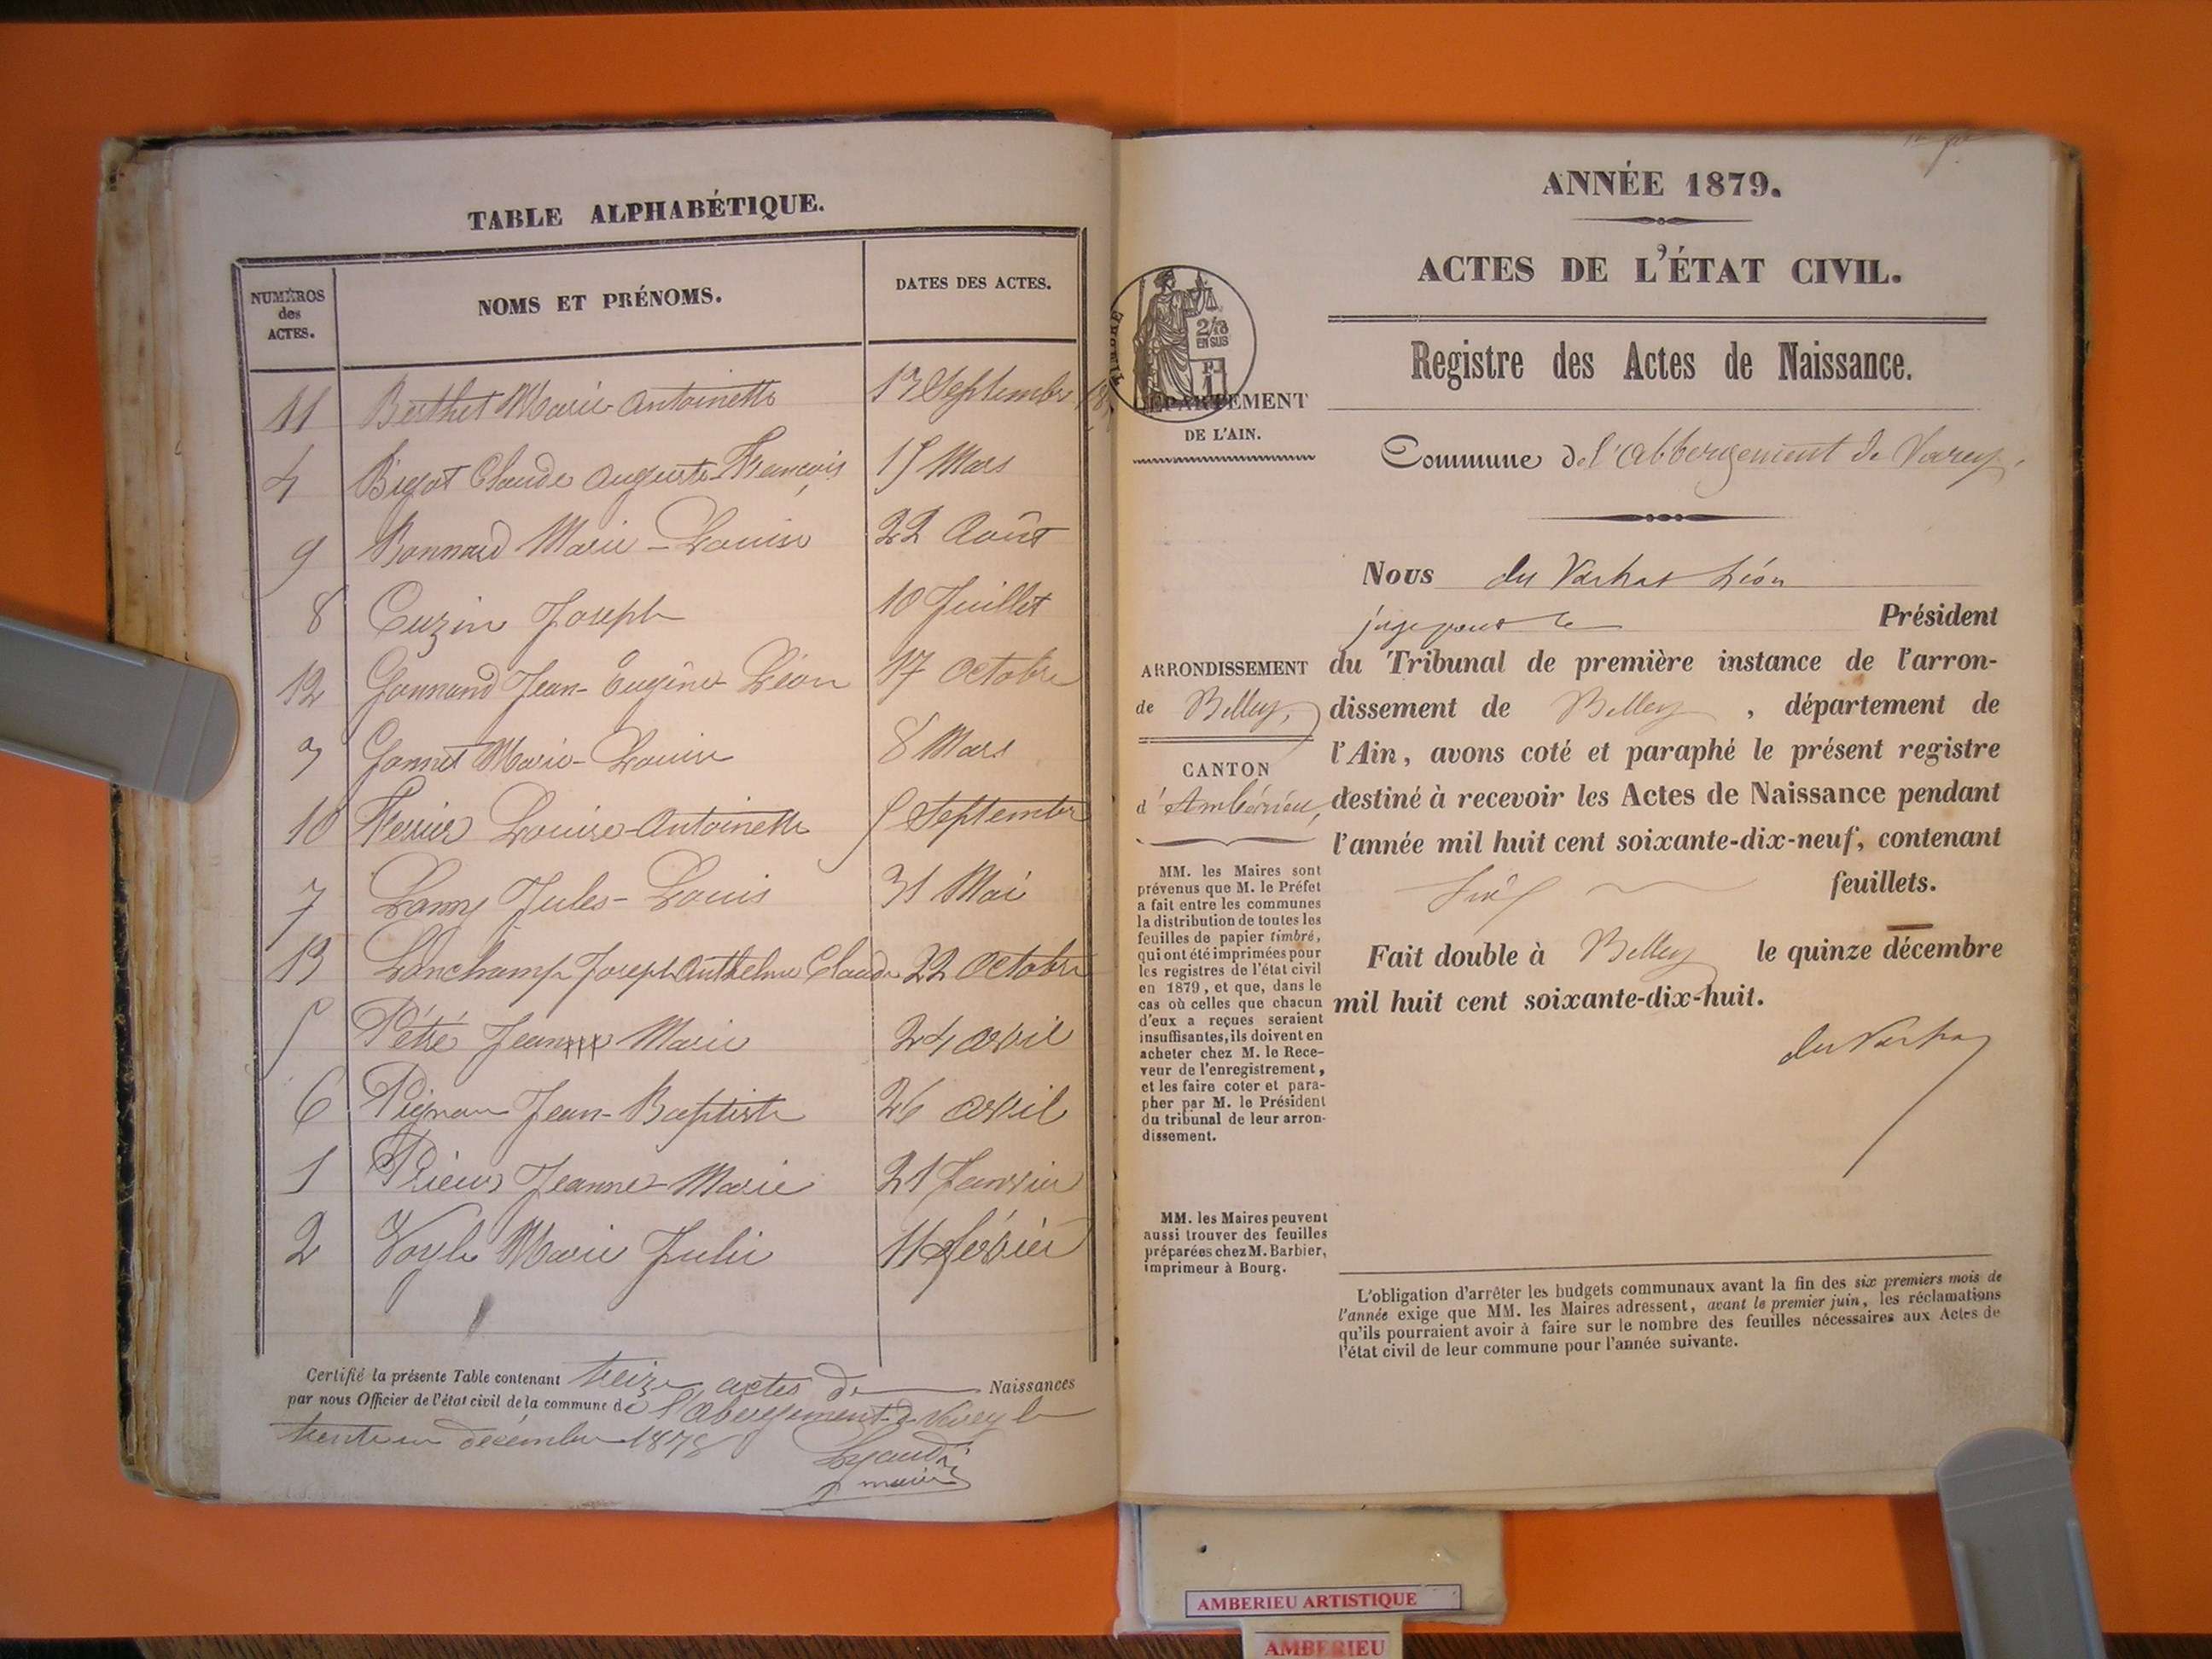 TABLE ALPHABÉTIQUE.
NUMÉROS
des
ACTES.
NOMS ET PRÉNOMS.
DATES DES ACTES.
11 Berthet Marie Antoinette 13 Septembre
4 Bigot Claude Auguste François 15 Mars
9 Bonnard Marie-Louise 22 Août
8 Cuzin Joseph 10 Juillet
12 Gonnand Jean-Eugène Léon 17 Octobre
3 Gonnet Marie-Louise 8 Mars
10 Ferrier Louise-Antoinette 5 Septembre
7 Lamy Jules-Louis 31 Mai
13 Lonchamp Joseph Anthelme Claude 22 Octobre
5 Pétré Jean Marie 24 avril
6 Pignon Jean-Baptiste 26 avril
1 Prieur Jeanne-Marie 21 Janvier
2 Marie Julie 11 février
Certifié la présente Table contenant treize actes de Naissances
par nous Officier de l'état civil de la commune de l'Abergement-de-Varey le
trente un décembre 1878
maire
ANNÉE 1879.
ACTES DE L'ÉTAT CIVIL.
Registre des Actes de Naissance.
TIMBRE
2/10
EN SUS
DÉPARTEMENT
DE L'AIN.
Commune de l'Abbergement de Varey,
Nous du Léon
juge pour le Président
ARRONDISSEMENT
de Belley,
CANTON
d'Ambérieu,
du Tribunal de première instance de l'arron-
dissement de Belley, département de
l'Ain, avons coté et paraphé le présent registre
destiné à recevoir les Actes de Naissance pendant
l'année mil huit cent soixante-dix-neuf, contenant
feuillets.
Fait double à Belley le quinze décembre
mil huit cent soixante-dix-huit.
MM. les Maires sont
prévenus que M. le Préfet
a fait entre les communes
la distribution de toutes les
feuilles de papier timbré,
qui ont été imprimées pour
les registres de l'état civil
en 1879, et que, dans le
cas où celles que chacun
d'eux a reçues seraient
insuffisantes, ils doivent en
acheter chez M. le Rece-
veur de l'enregistrement,
et les faire coter et para-
pher par M. le Président
du tribunal de leur arron-
dissement.
MM. les Maires peuvent
aussi trouver des feuilles
préparées chez M. Barbier,
imprimeur à Bourg.
L'obligation d'arrêter les budgets communaux avant la fin des six premiers mois de
l'année exige que MM. les Maires adressent, avant le premier juin, les réclamations
qu'ils pourraient avoir à faire sur le nombre des feuilles nécessaires aux Actes de
l'état civil de leur commune pour l'année suivante.
AMBERIEU ARTISTIQUE
AMBERIEU